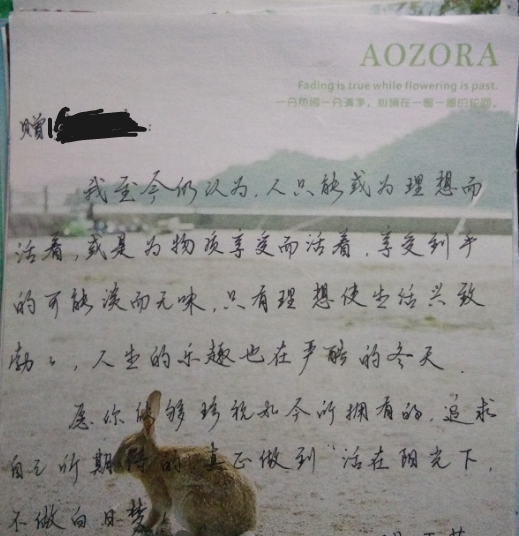 AOZORA
Fading is true while flowering is past.
赠
我至今仍认为，人只能或为理想而
活着，或是为物质享受而活着，享受到手
的可能淡而无味，只有理想使生活兴致
勃勃，人生的乐趣也在严酷的冬天.
愿你能够珍视如今所拥有的，追求
自己所期待的，真正做到“活在阳光下，
不做白日梦